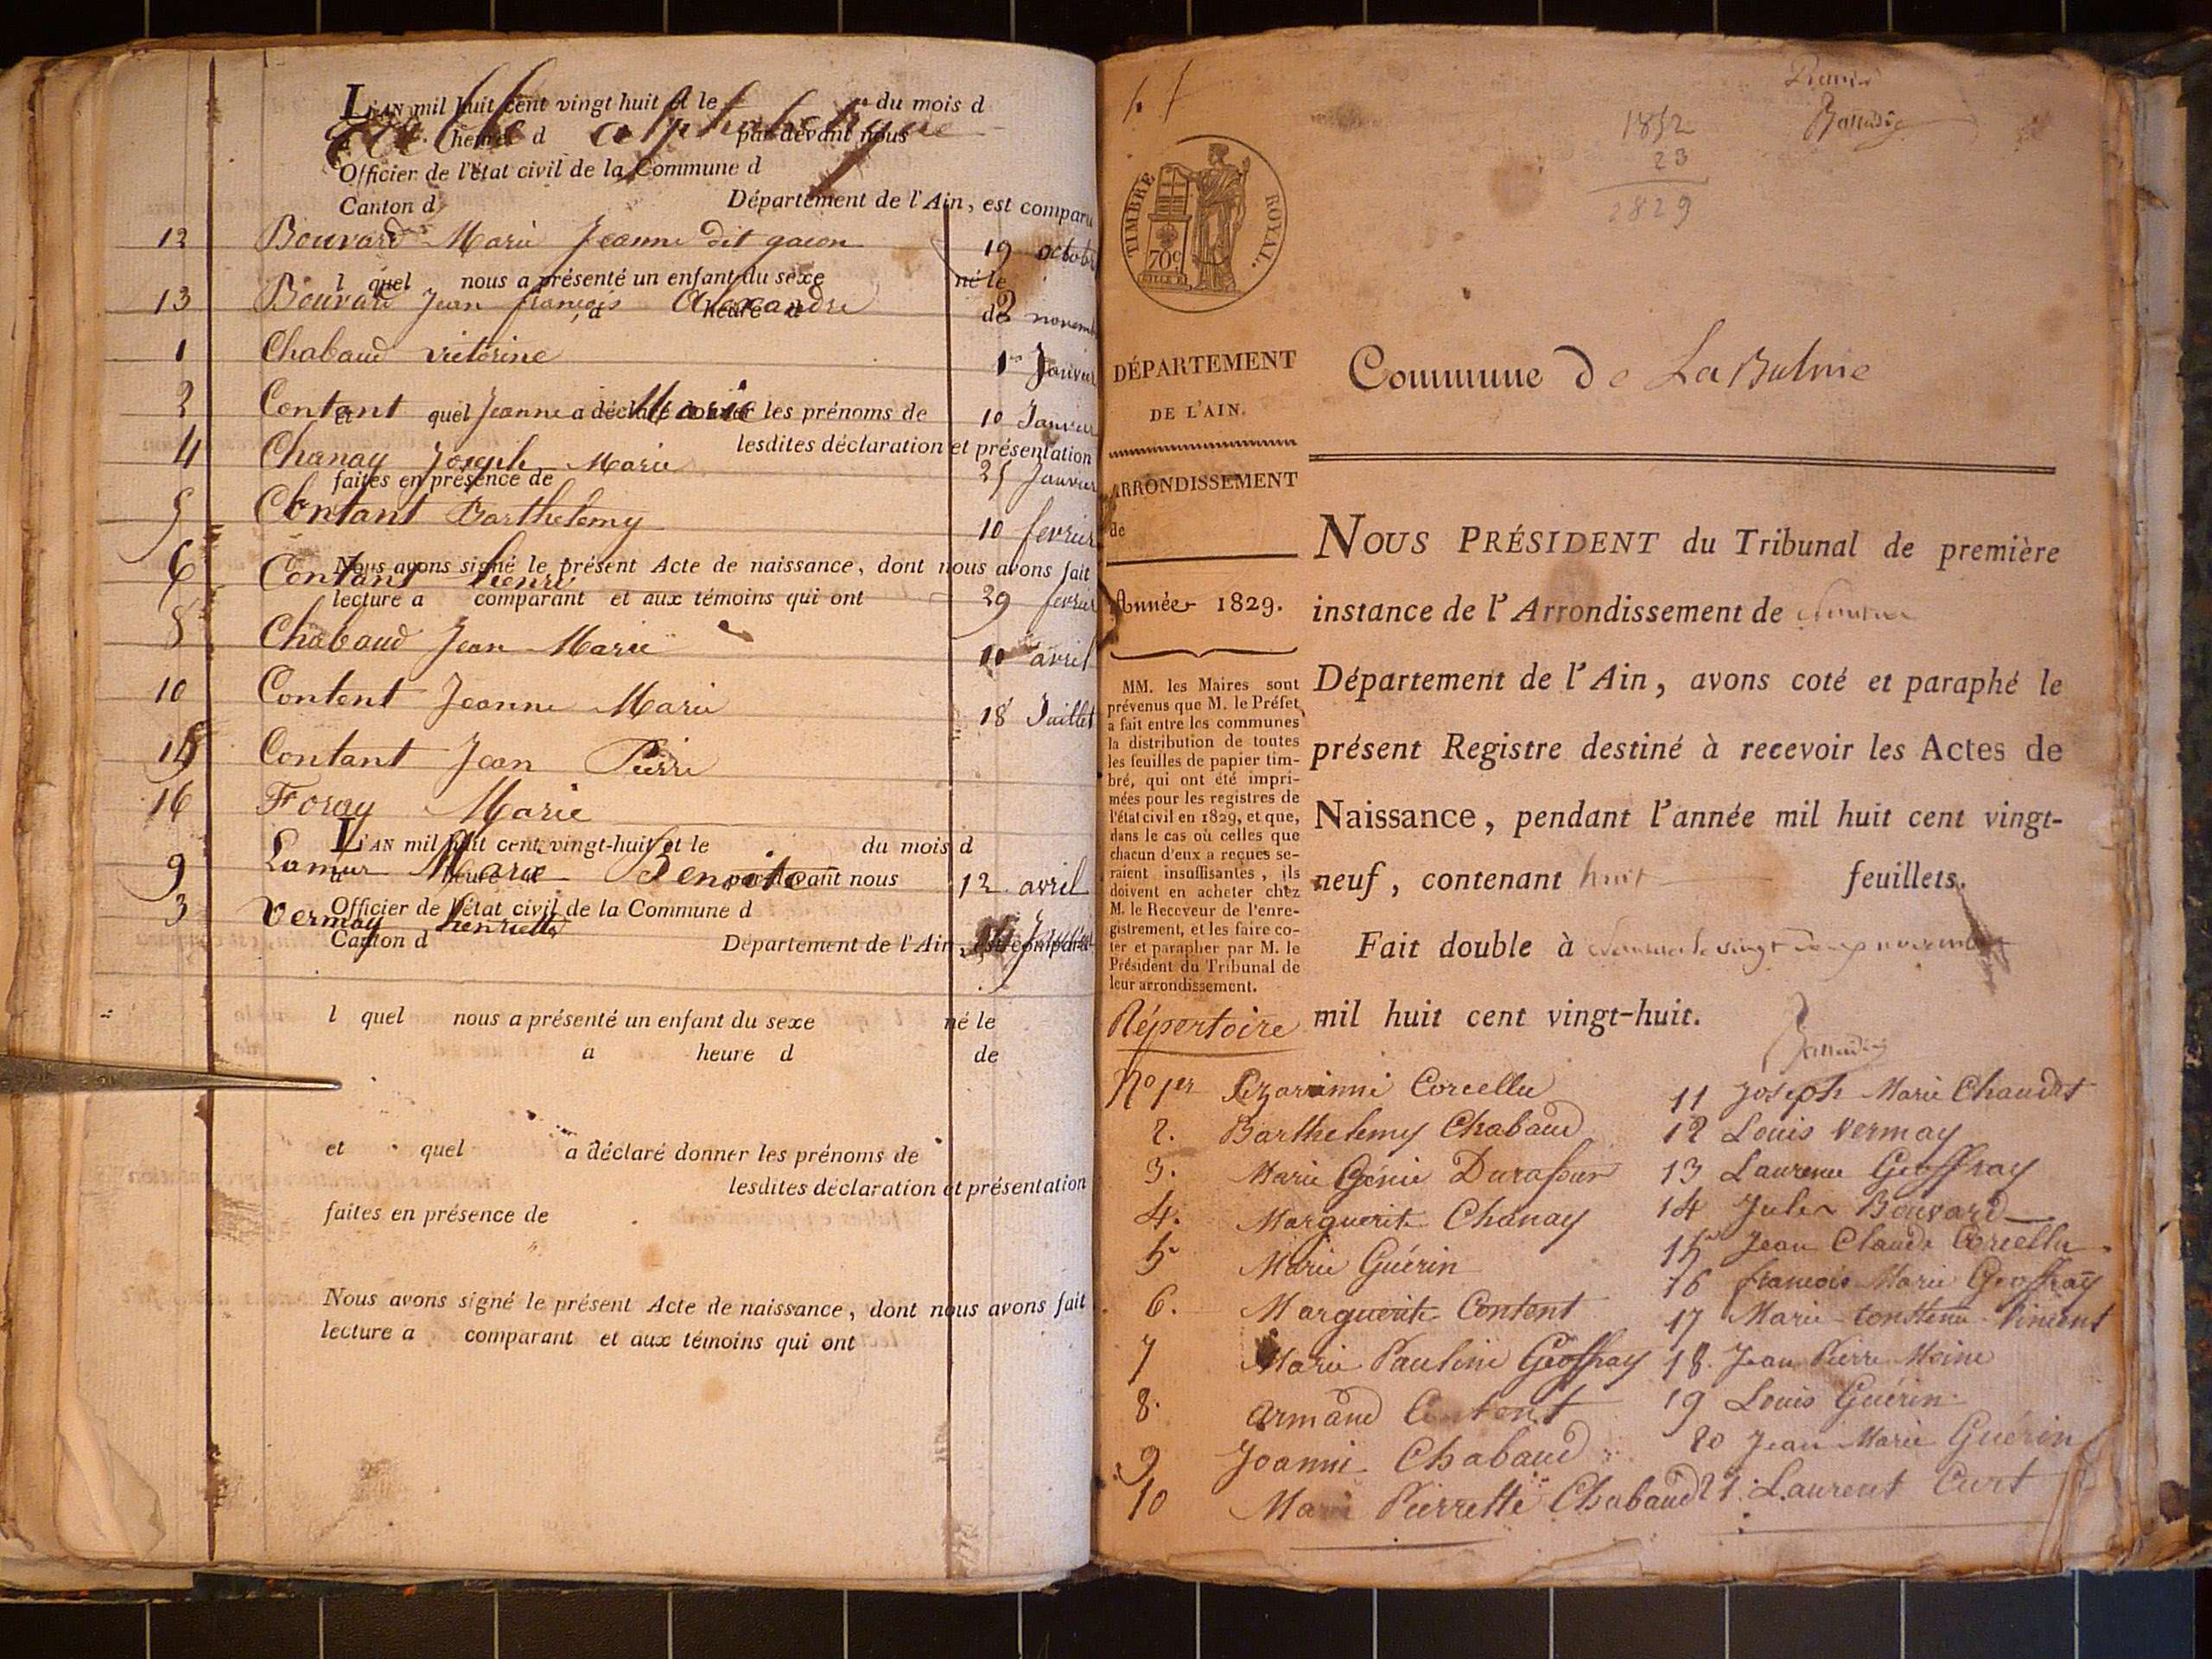 L'AN mil huit cent vingt huit et le du mois d
Table alphabetique
heure d par devant nous
Officier de l'état civil de la Commune d
Canton d Département de l'Ain, est comparu
12 Bouvard Marie Jeanne dit gacon 19 octobre
l quel nous a présenté un enfant du sexe né le
13 Bouvard Jean françois Alexandre 2 novemb
à heure d de
1 Chabaud victorine 1er Janvier
2 Contant Jeanne Marie 10 Janvier
et quel a déclaré donner les prénoms de
lesdites déclaration et présentation
4 Chanay Joseph Marie 25 Janvier
faites en présence de
5 Contant Barthelemy 10 fevrier
Nous avons signé le présent Acte de naissance, dont nous avons fait
6 Contant henri 29 fevrier
lecture a comparant et aux témoins qui ont
8 Chabaud Jean Marie 10 avril
10 Content Jeanne Marie 18 Juillet
15 Contant Jean Pierre
16 Foray Marie
L'AN mil huit cent vingt-huit et le du mois d
9 Lamur Marie Benoite 12 avril
à heure d par devant nous
Officier de l'état civil de la Commune d
3 Vermay henriette
Canton d Département de l'Ain, est comparu
l quel nous a présenté un enfant du sexe né le
a heure d de
et quel a déclaré donner les prénoms de
lesdites déclaration et présentation
faites en présence de
Nous avons signé le présent Acte de naissance, dont nous avons fait
lecture a comparant et aux témoins qui ont
1832
23
2829
TIMBRE ROYAL.
70c
DÉPARTEMENT
DE L'AIN.
ARRONDISSEMENT
de
Année 1829.
MM. les Maires sont
prévenus que M. le Préfet
a fait entre les communes
la distribution de toutes
les feuilles de papier tim-
bré, qui ont été impri-
mées pour les registres de
l'état civil en 1829, et que,
dans le cas où celles que
chacun d'eux a reçues se-
raient insuffisantes, ils
doivent en acheter chez
M. le Receveur de l'enre-
gistrement, et les faire co-
ter et parapher par M. le
Président du Tribunal de
leur arrondissement.
Commune de La Balme
NOUS PRÉSIDENT du Tribunal de première
instance de l'Arrondissement de
Département de l'Ain, avons coté et paraphé le
présent Registre destiné à recevoir les Actes de
Naissance, pendant l'année mil huit cent vingt-
neuf, contenant huit feuillets.
Fait double à le vingt novembre
mil huit cent vingt-huit.
Répertoire
No 1er Corcellu
2. Barthelemy Chabaud
3. Marie Génie Durafour
4. Marguerite Chanay
5 Marie Guérin
6. Marguerite Content
7 Marie Pauline Geoffray
8. Armand Content
9 Joanni Chabaud
10 Marie Pierrette Chabaud
11 Joseph Marie Chaudet
12 Louis Vermay
13 Laurence Geoffray
14 Jules Bouvard
15 Jean Claude Corcellu
16 françois Marie Geoffray
17 Marie Vincent
18. Jean Pierre Moine
19 Louis Guérin
20 Jean Marie Guérin
21. Laurent Curt